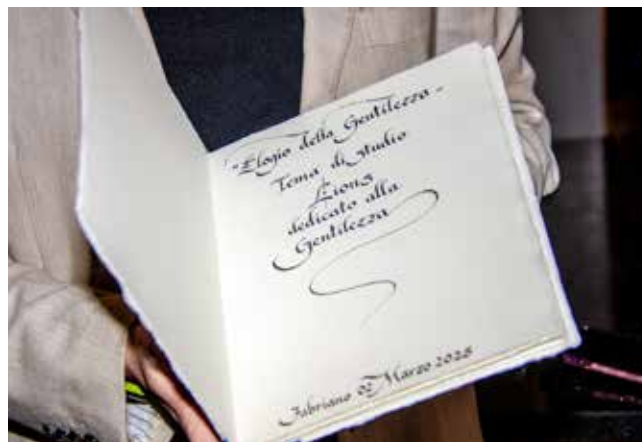 "Elogio della Gentilezza"
Tema di studio
Lions
dedicato alla
Gentilezza
Fabriano 02 Marzo 2025